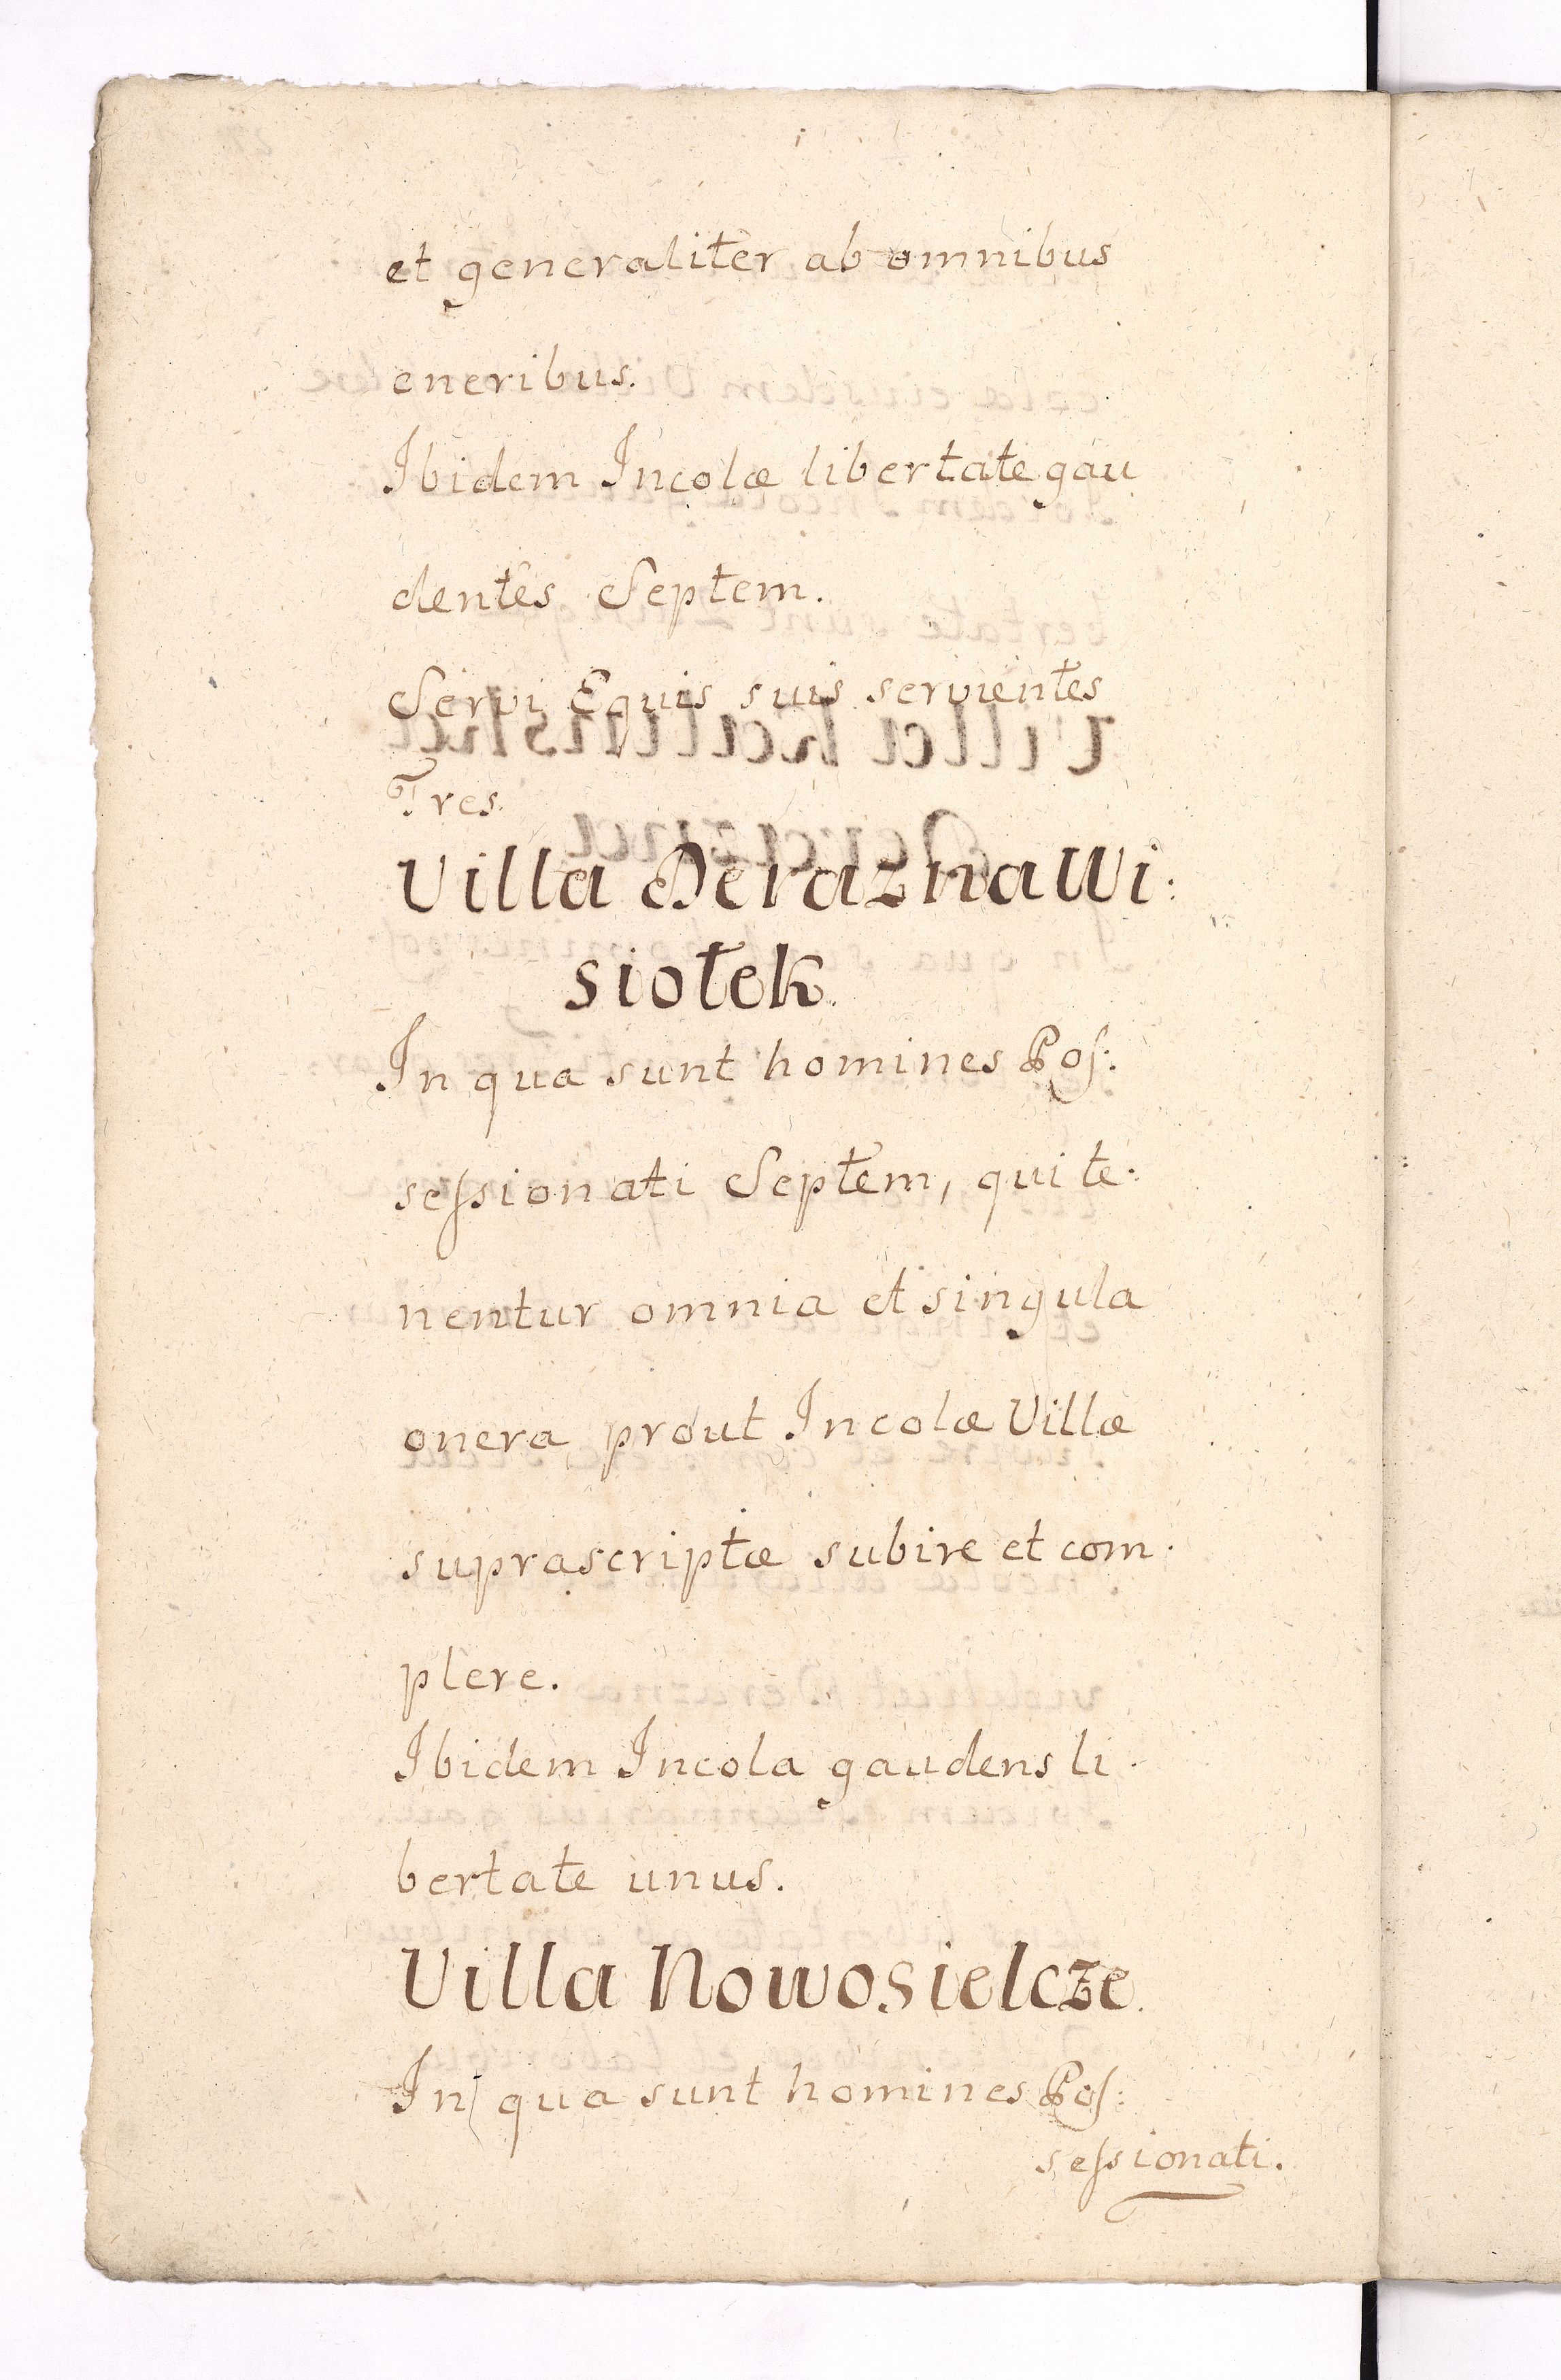 et generaliter ab omnibus
oneribus.
Ibidem Incolæ libertate gau
dentes Septem.
Servi Equis suis servientes
Tres.
Villa Derazna Wi:
siołek.
In qua sunt homines Poſ:
seſsionati Septem, qui te:
nentur omnia et singula
onera prout Incolæ Villæ
suprascriptæ subire et com:
plere.
Ibidem Incola gaudens li:
bertate unus.
Villa Nowosielcze.
In qua sunt homines Poſ:
seſsionati.